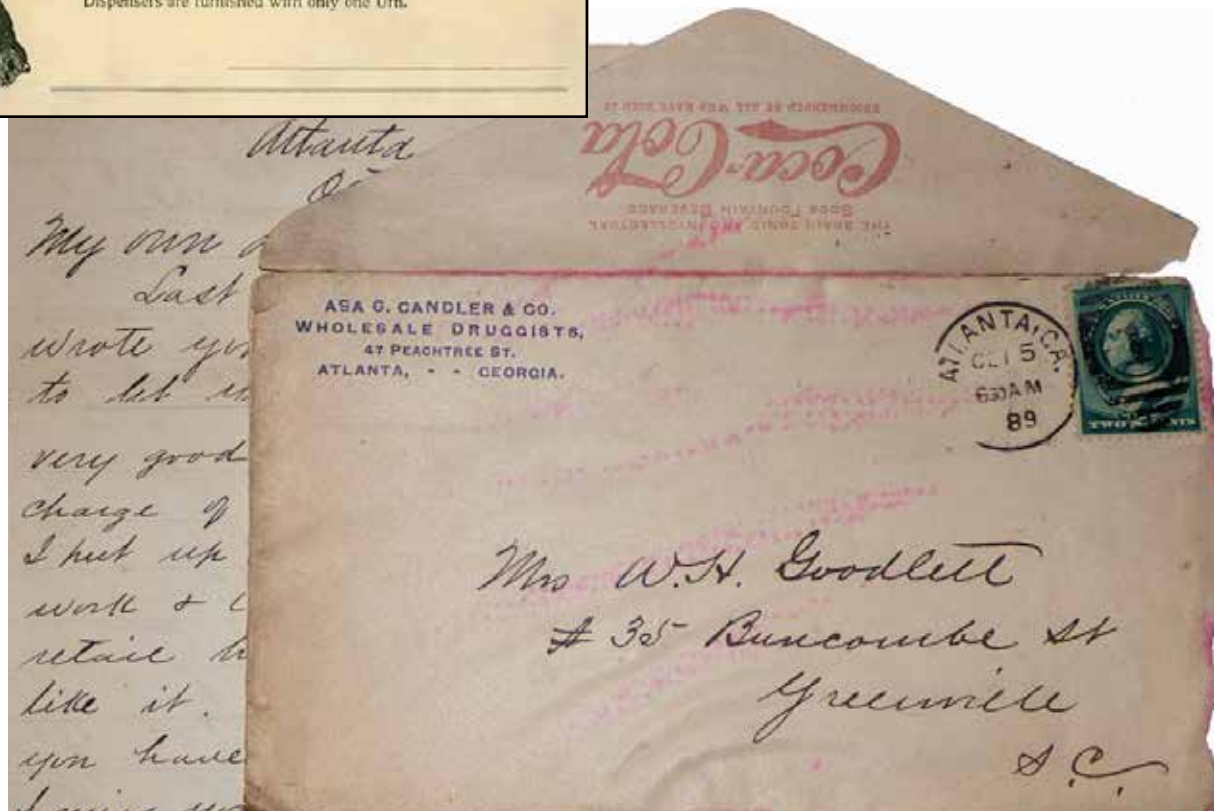 Dispensers are furnished with only one Urn.
Atlanta
My own
Last
wrote you
to let
very good
charge of
I put up
work &
retail
like it.
you have
RECOMMENDED BY ALL WHO HAVE USED IT
Coca-Cola
SODA FOUNTAIN BEVERAGE
THE BRAIN TONIC AND INTELLECTUAL
ASA G. CANDLER & CO.
WHOLESALE DRUGGISTS,
47 PEACHTREE ST.
ATLANTA, - - GEORGIA.
ATLANTA, GA.
OCT 5
630AM
89
TWO CENTS
Mrs W. H. Goodlett
# 35 Buncombe St
Greenville
S. C.